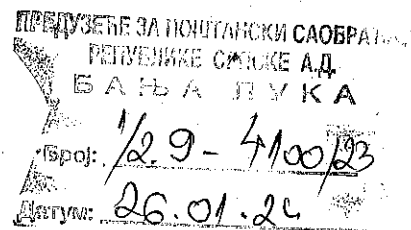 ПРЕДУЗЕЋЕ ЗА ПОШТАНСКИ САОБРАЋАЈ
РЕПУБЛИКЕ СРПСКЕ А.Д.
БАЊА ЛУКА
Број: 1/2.9-4100/23
Датум: 26.01.24